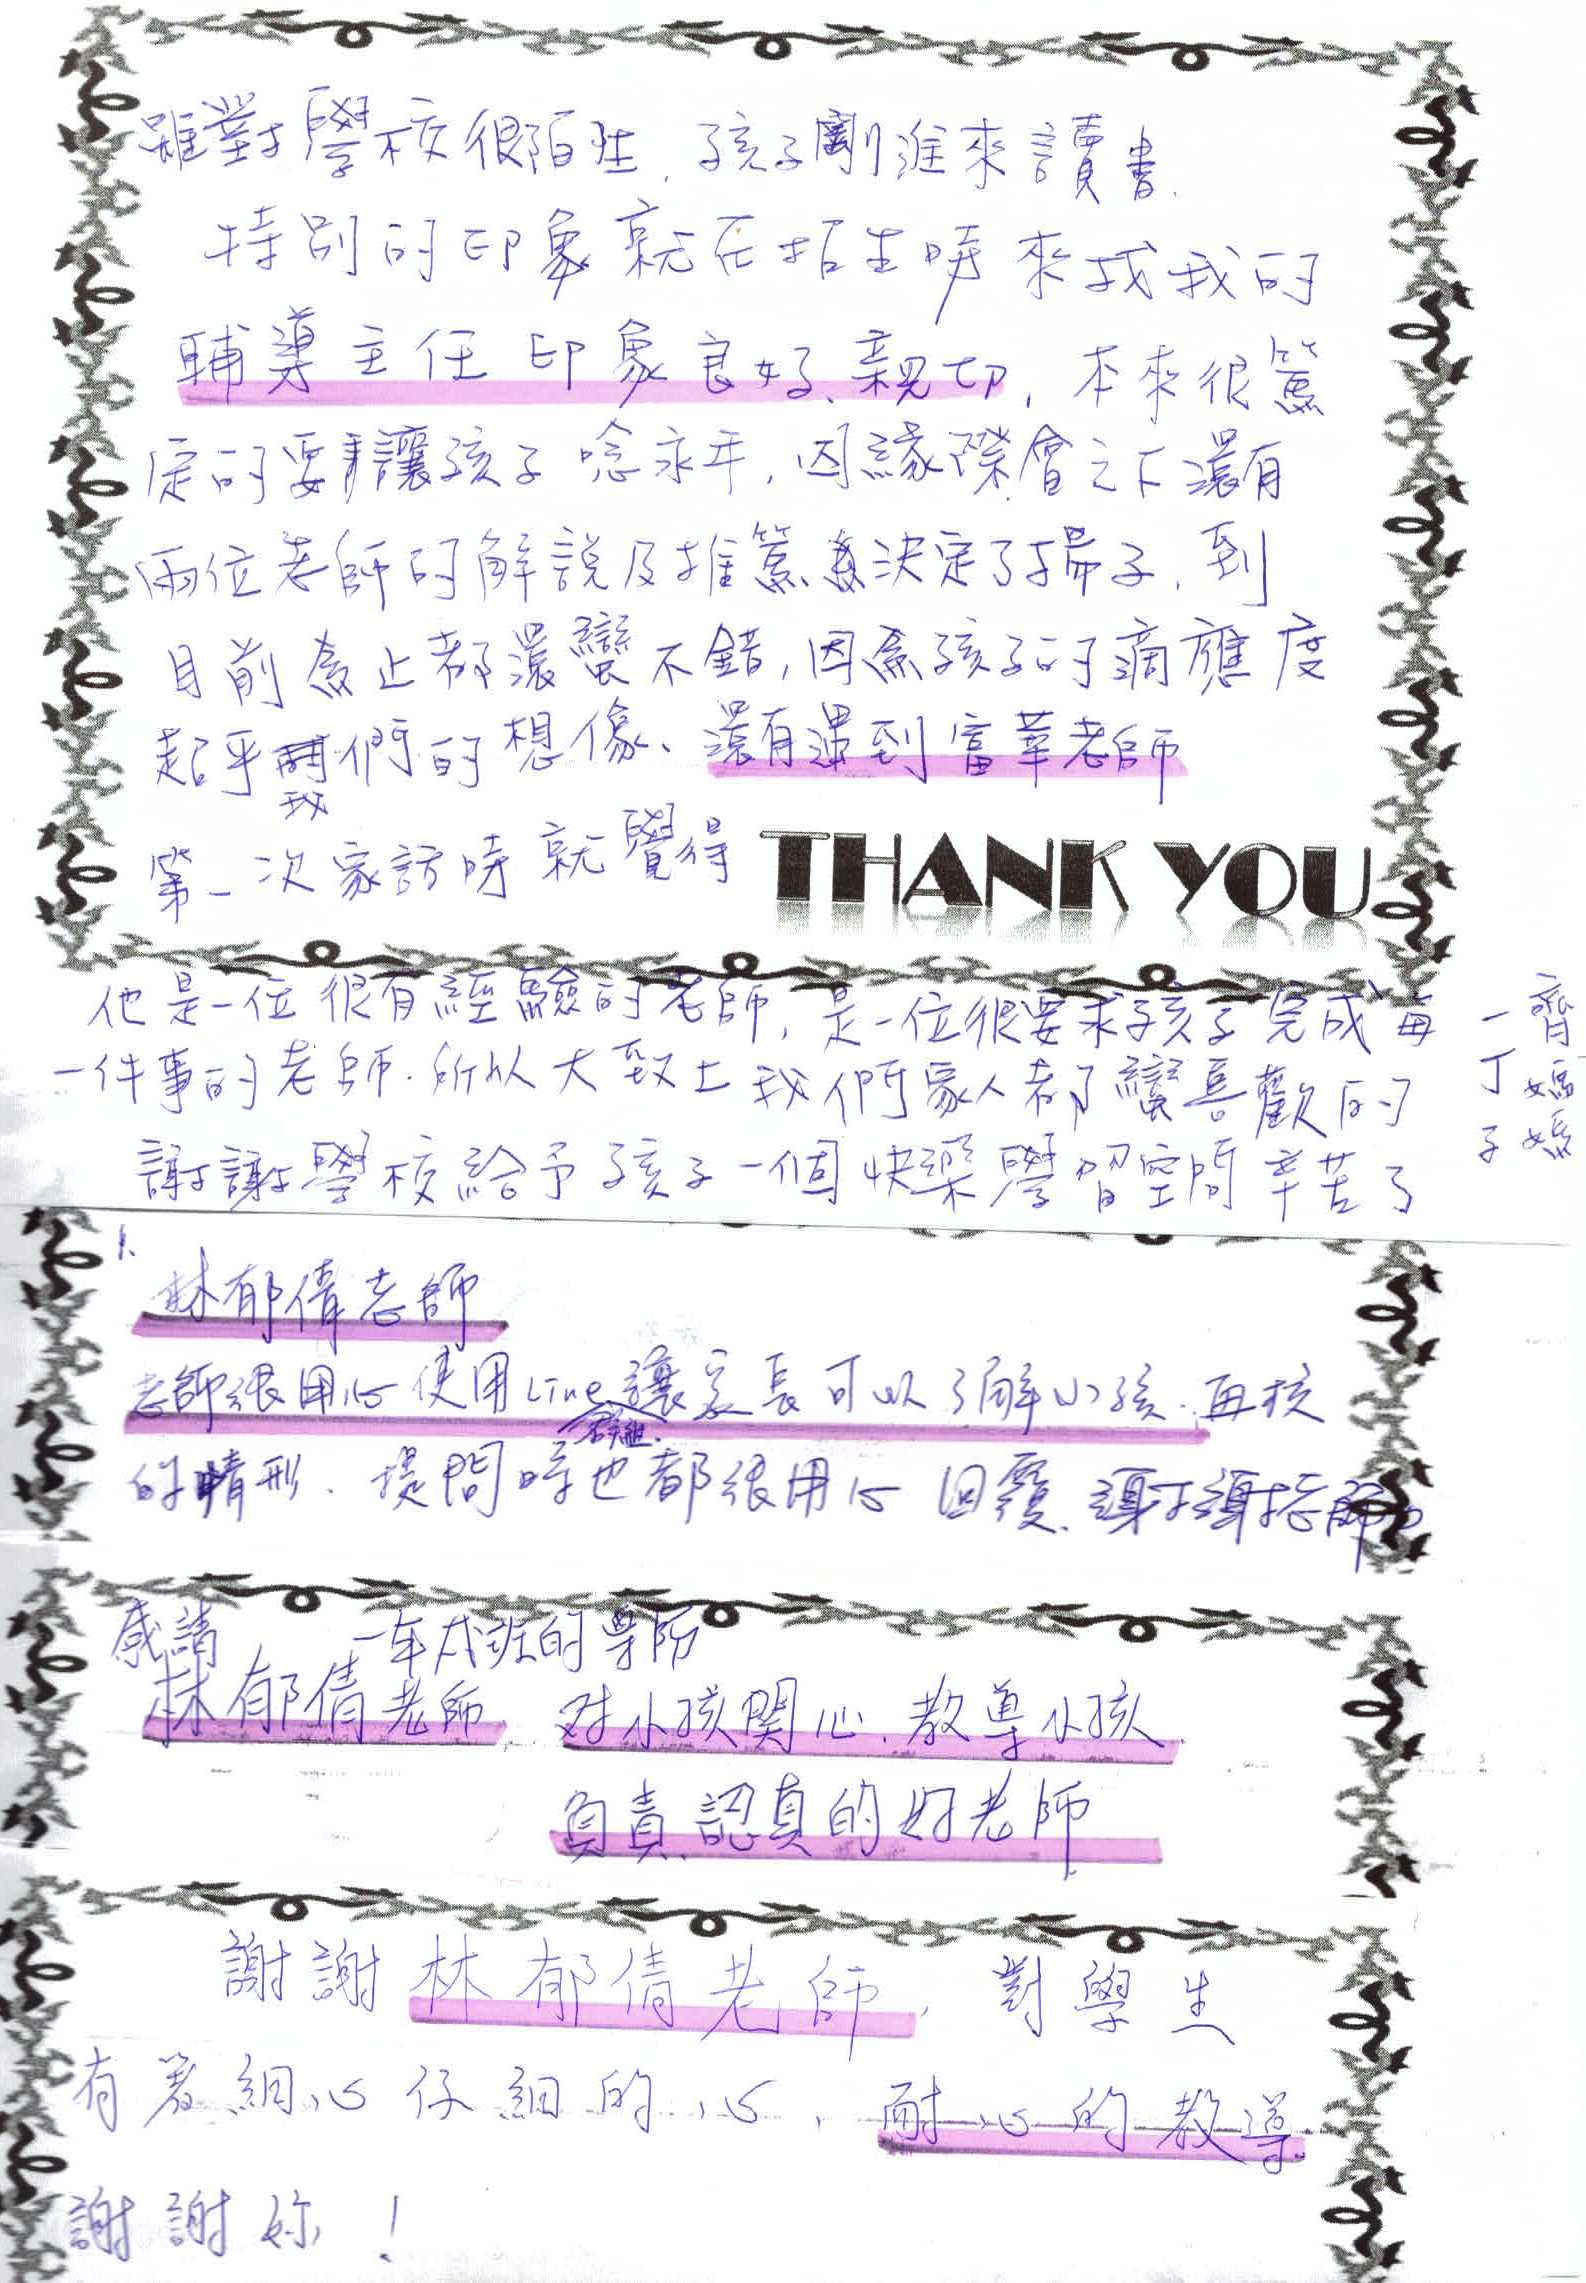 雖對學校很陌生，孩子剛進來讀書，
特別的印象就在招生時來找我的
輔導主任印象良好、親切，本來很篤
定的要讓孩子唸永平，因緣際會之下還有
兩位老師的解說及推薦決定了揚子，到
目前為止都還蠻不錯，因為孩子的適應度
超乎我們的想像、還有遇到富華老師
第一次家訪時就覺得
THANK YOU
他是一位很有經驗的老師，是一位很要求孩子完成每
一件事的老師．所以大致上我們家人都蠻喜歡的
謝謝學校給予孩子一個快樂學習空間辛苦了
一丁子
齊媽媽
1.
林郁倩老師
老師很用心使用Line群組讓家長可以了解小孩．再校
的情形．提問時也都很用心回覆．謝謝老師
感請
一年戊班的導師
林郁倩老師 对小孩関心．教導小孩．
負責、認真的好老師
謝謝林郁倩老師，對學生
有著細心仔細的心，耐心的教導．
謝謝妳！